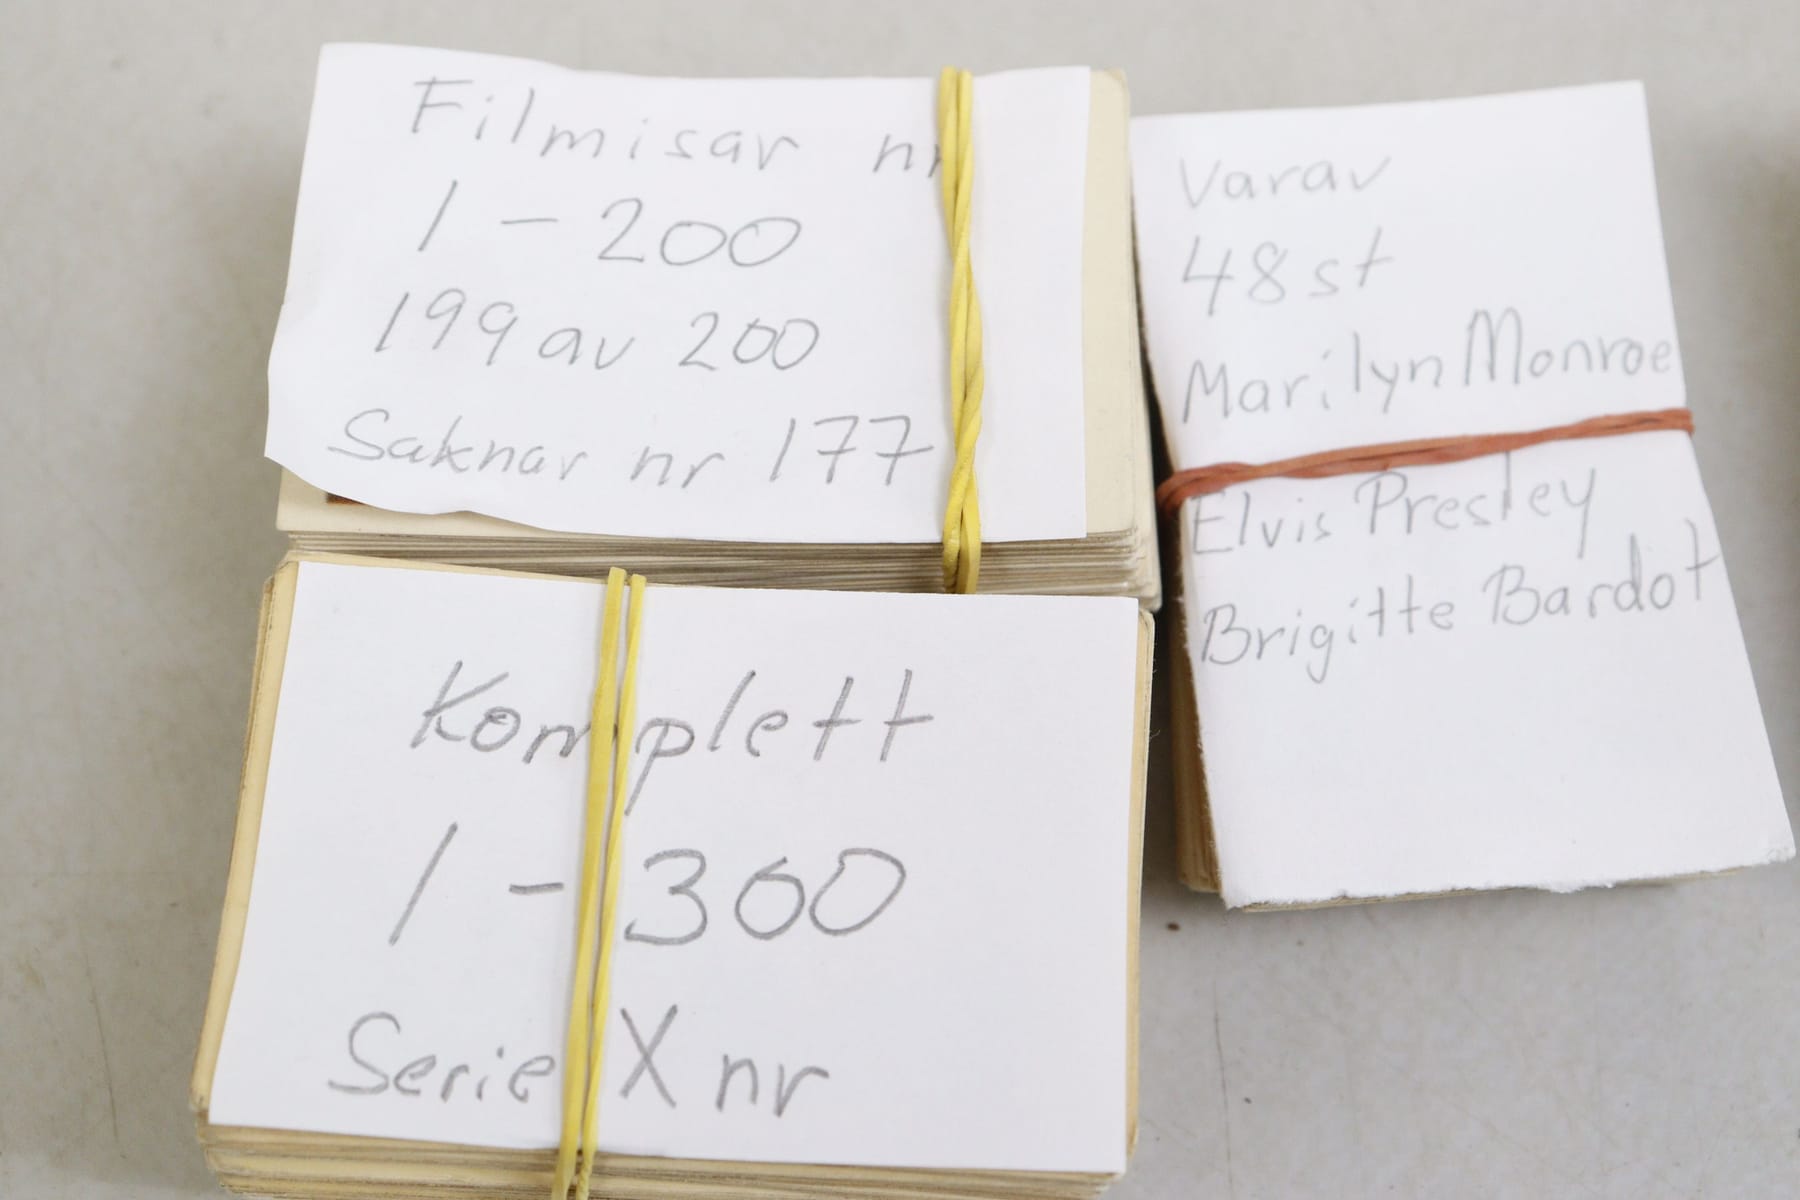 Filmisar nr
1 - 200
199 av 200
Saknar nr 177
Varav
48 st
Marilyn Monroe
Elvis Presley
Brigitte Bardot
Komplett
1 - 300
Serie X nr